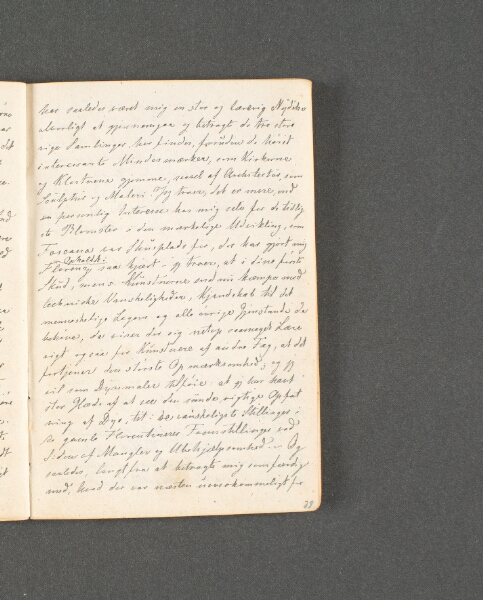 har saaledes været mig en stor og lærerig Nydelse
alvorligt at gjennemgaa og betragte de tre store
rige Samlinger her findes, foruden de høist
interessante Mindesmærker, som Kirkerne
og Klostrene gjemme, saavel af Architectur, som
Sculptur og Maleri. Jeg troer, det er mere, end
en personlig Interesse har mig selv for de tidlig
ste Blomster i den mærkelige Udvikling, som
Toscana var Skueplads for, der har gjort mig
Opholdet i
Florenz saa kjært. jeg troer, at i disse første
Skud, mens Kunstnerne endnu kæmpe med
techniske Vanskeligheder, Kjendskab til det
menneskelige Legeme og alle øvrige Gjenstande de
behøve, da viser der sig netop saameget Lære
rigt ogsaa for Kunstnere af andre Fag, at det
fortjener den største Opmærksomhed; og jeg
vil som Dyrmaler tilføie: at jeg har havt
stor Glæde af at see den sunde, rigtige Opfat
ning af Dyr, tit i de vanskeligste Stillinger i
de gamle Florentineres Fremstillinger ved
Siden af Mangler og Ubehjælpsomhed. – Og
saaledes, langt fra at betragte mig som færdig
med, hvad der var næsten uoverkommeligt for
38